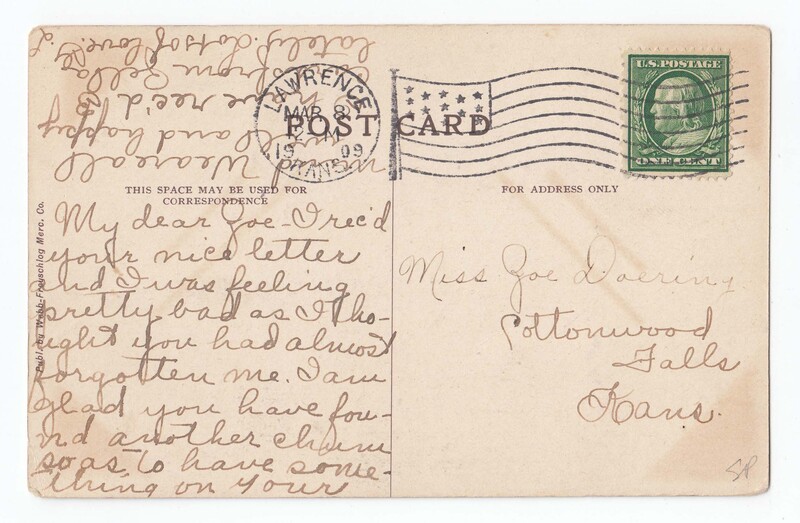 POST CARD
LAWRENCE
MAR 8
1909
KANS.
U.S. POSTAGE
ONE CENT
THIS SPACE MAY BE USED FOR
CORRESPONDENCE
FOR ADDRESS ONLY
Publ. by Webb-Freyschlag Merc. Co.
My dear Zoe - I rec'd
your nice letter
and I was feeling
pretty bad as I tho-
ught you had almost
forgotten me. I am
glad you have fou-
nd another chum
so as to have some-
thing on your
mind. We are all
well and happy
rec'd
from
lately. Lots of love. L
Miss Zoe Doering
Cottonwood
Falls
Kans.